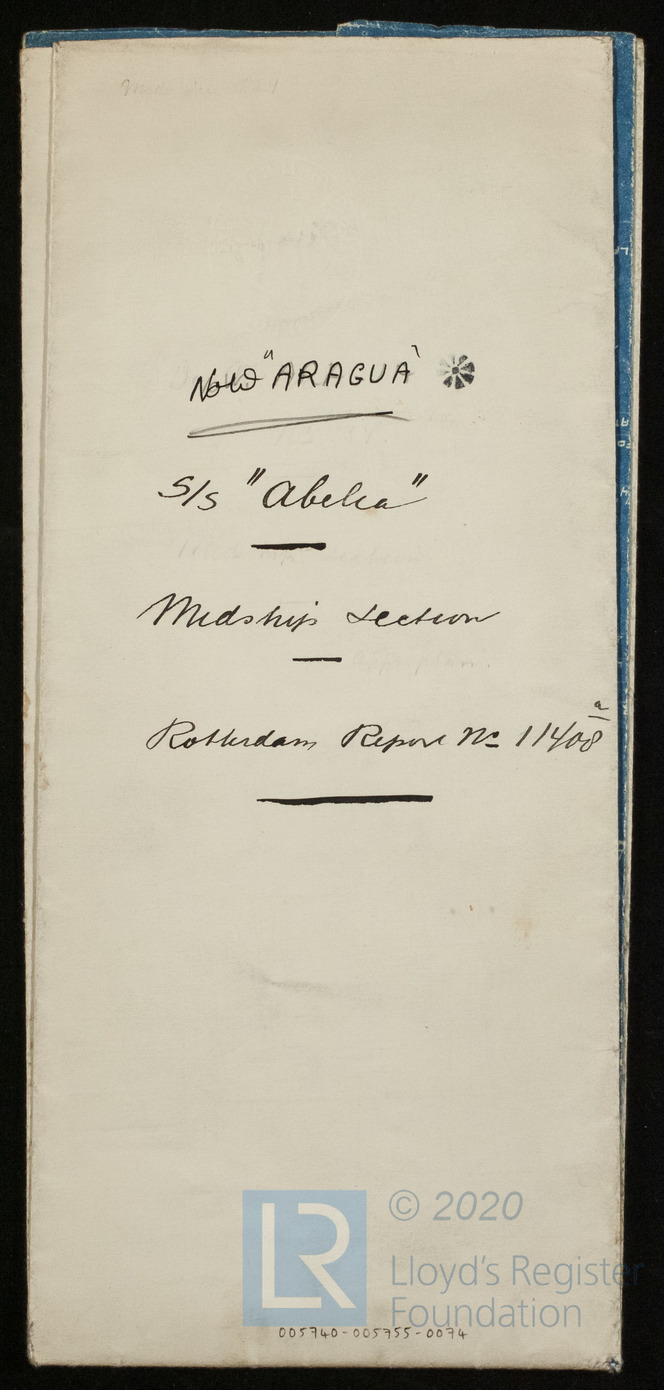 Now "ARAGUA"
S/S "Abelia"
Midship Section
Rotterdam Report No 11408 a
LR
© 2020
Lloyd's Register
Foundation
005740-005755-0074